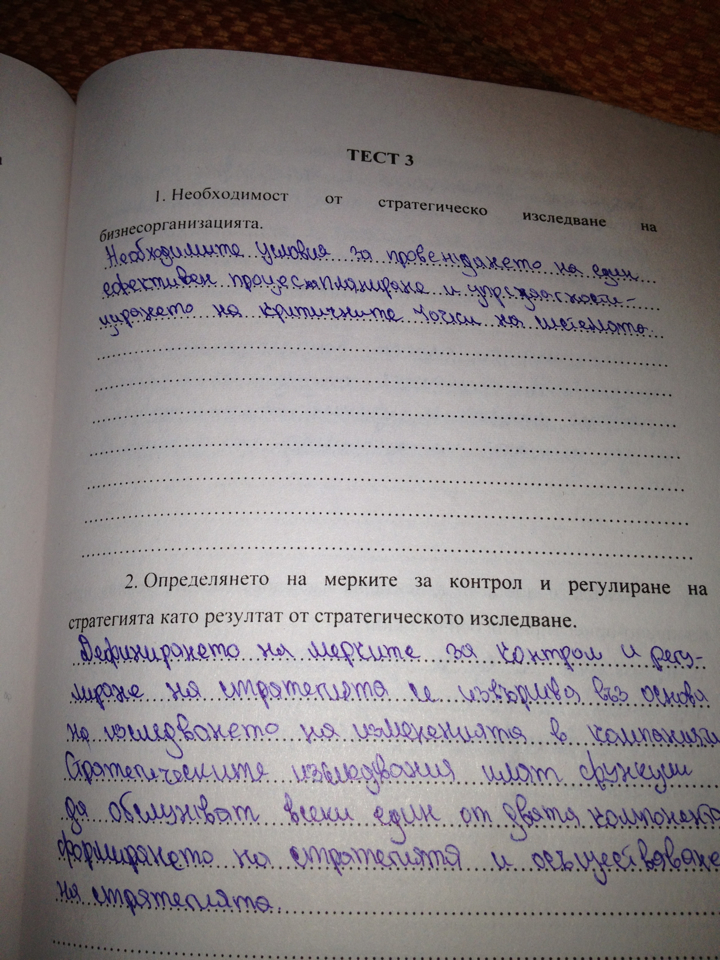 ТЕСТ 3
1. Необходимост от стратегическо изследване на
бизнесорганизацията.
Необходимите условия за провеждането на един
ефективен процес планиране и
на критичните точки на системата.
2. Определянето на мерките за контрол и регулиране на
стратегията като резултат от стратегическото изследване.
Дефинирането на мерките за контрол и регу-
лиране на стратегията се извършва въз основа
на изследването на измененията в компанията
Стратегическите изследвания имат функции
да обслужват всеки един от двата компонента
формирането на стратегията и осъществяване
на стратегията.